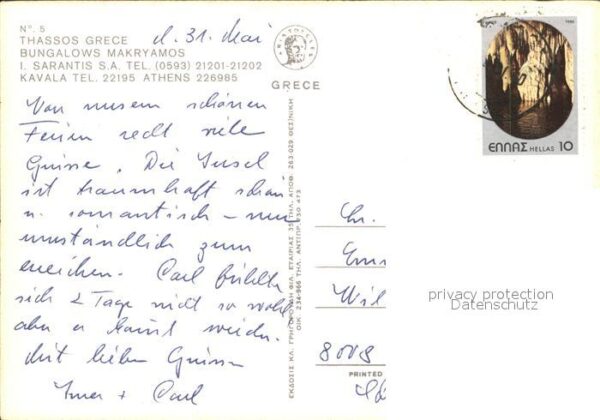 Nº. 5
THASSOS GRECE
BUNGALOWS MAKRYAMOS
I. SARANTIS S.A. TEL. (0593) 21201-21202
KAVALA TEL. 22195 ATHENS 226985
d. 31. Mai
GRECE
Von unserem schönen
Ferien recht viele
Grüsse. Die Insel
ist traumhaft schön
u. romantisch – nur
umständlich zum
erreichen. Carl fühlte
sich 2 Tage nicht so wohl
aber es kommt wieder.
Mit lieben Grüssen
+ Carl
ΕΚΔΟΣΙΣ ΚΛ. ΦΙΛ. ΕΤΑΙΡΙΑΣ 35 ΤΗΛ. ΑΠΟΘ. 283.029 ΘΕΣ/ΝΙΚΗ
ΟΙΚ. 234-966 ΤΗΛ. ΑΝΤΙΠΡ. 830 473
1980
ΕΛΛΑΣ HELLAS 10
Wil
8008
PRINTED
privacy protection
Datenschutz